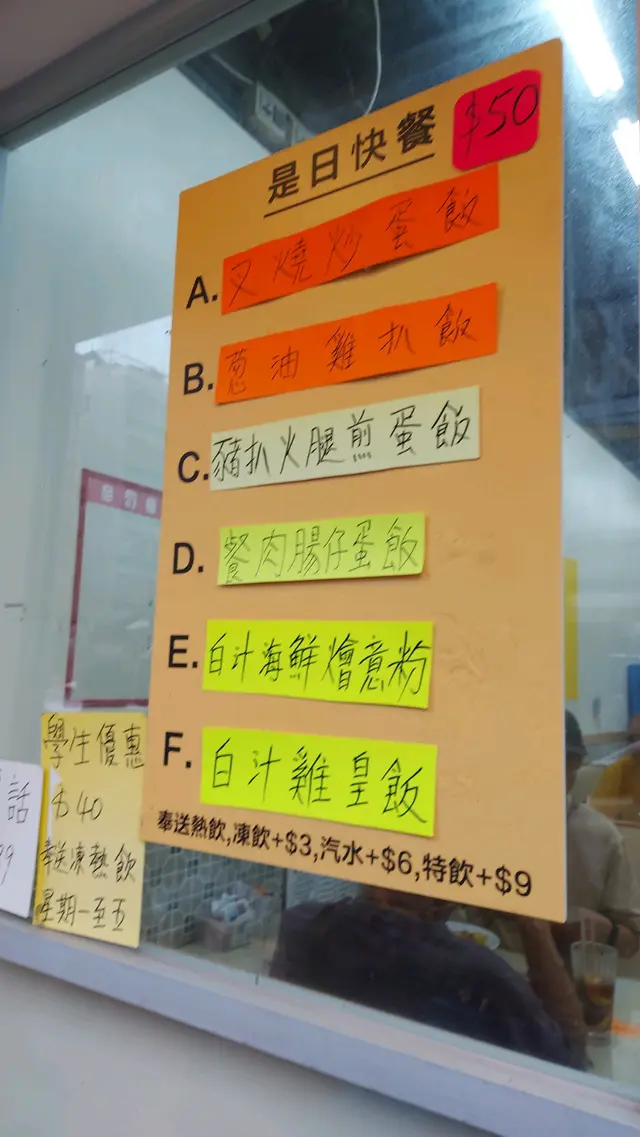 是日快餐
$50
A. 叉燒炒蛋飯
B. 葱油雞扒飯
C. 豬扒火腿煎蛋飯
D. 餐肉腸仔蛋飯
E. 白汁海鮮燴意粉
F. 白汁雞皇飯
奉送熱飲,凍飲+$3,汽水+$6,特飲+$9
學生優惠
$40
奉送凍熱飲
星期一至五
話